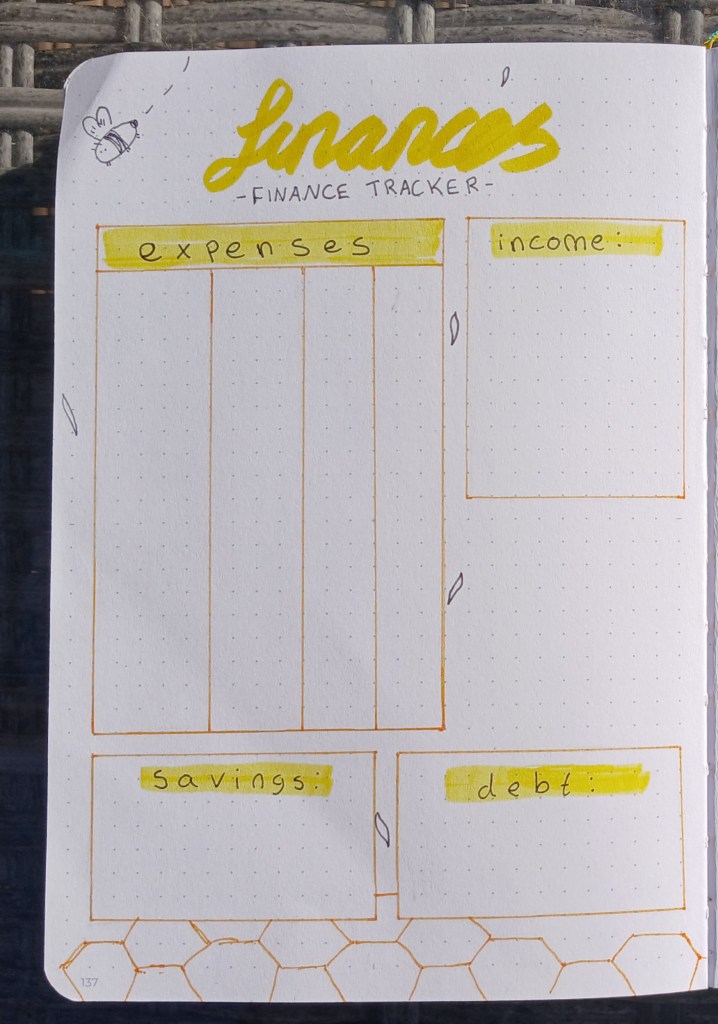 finances
-FINANCE TRACKER-
expenses
income:
savings:
debt:
137